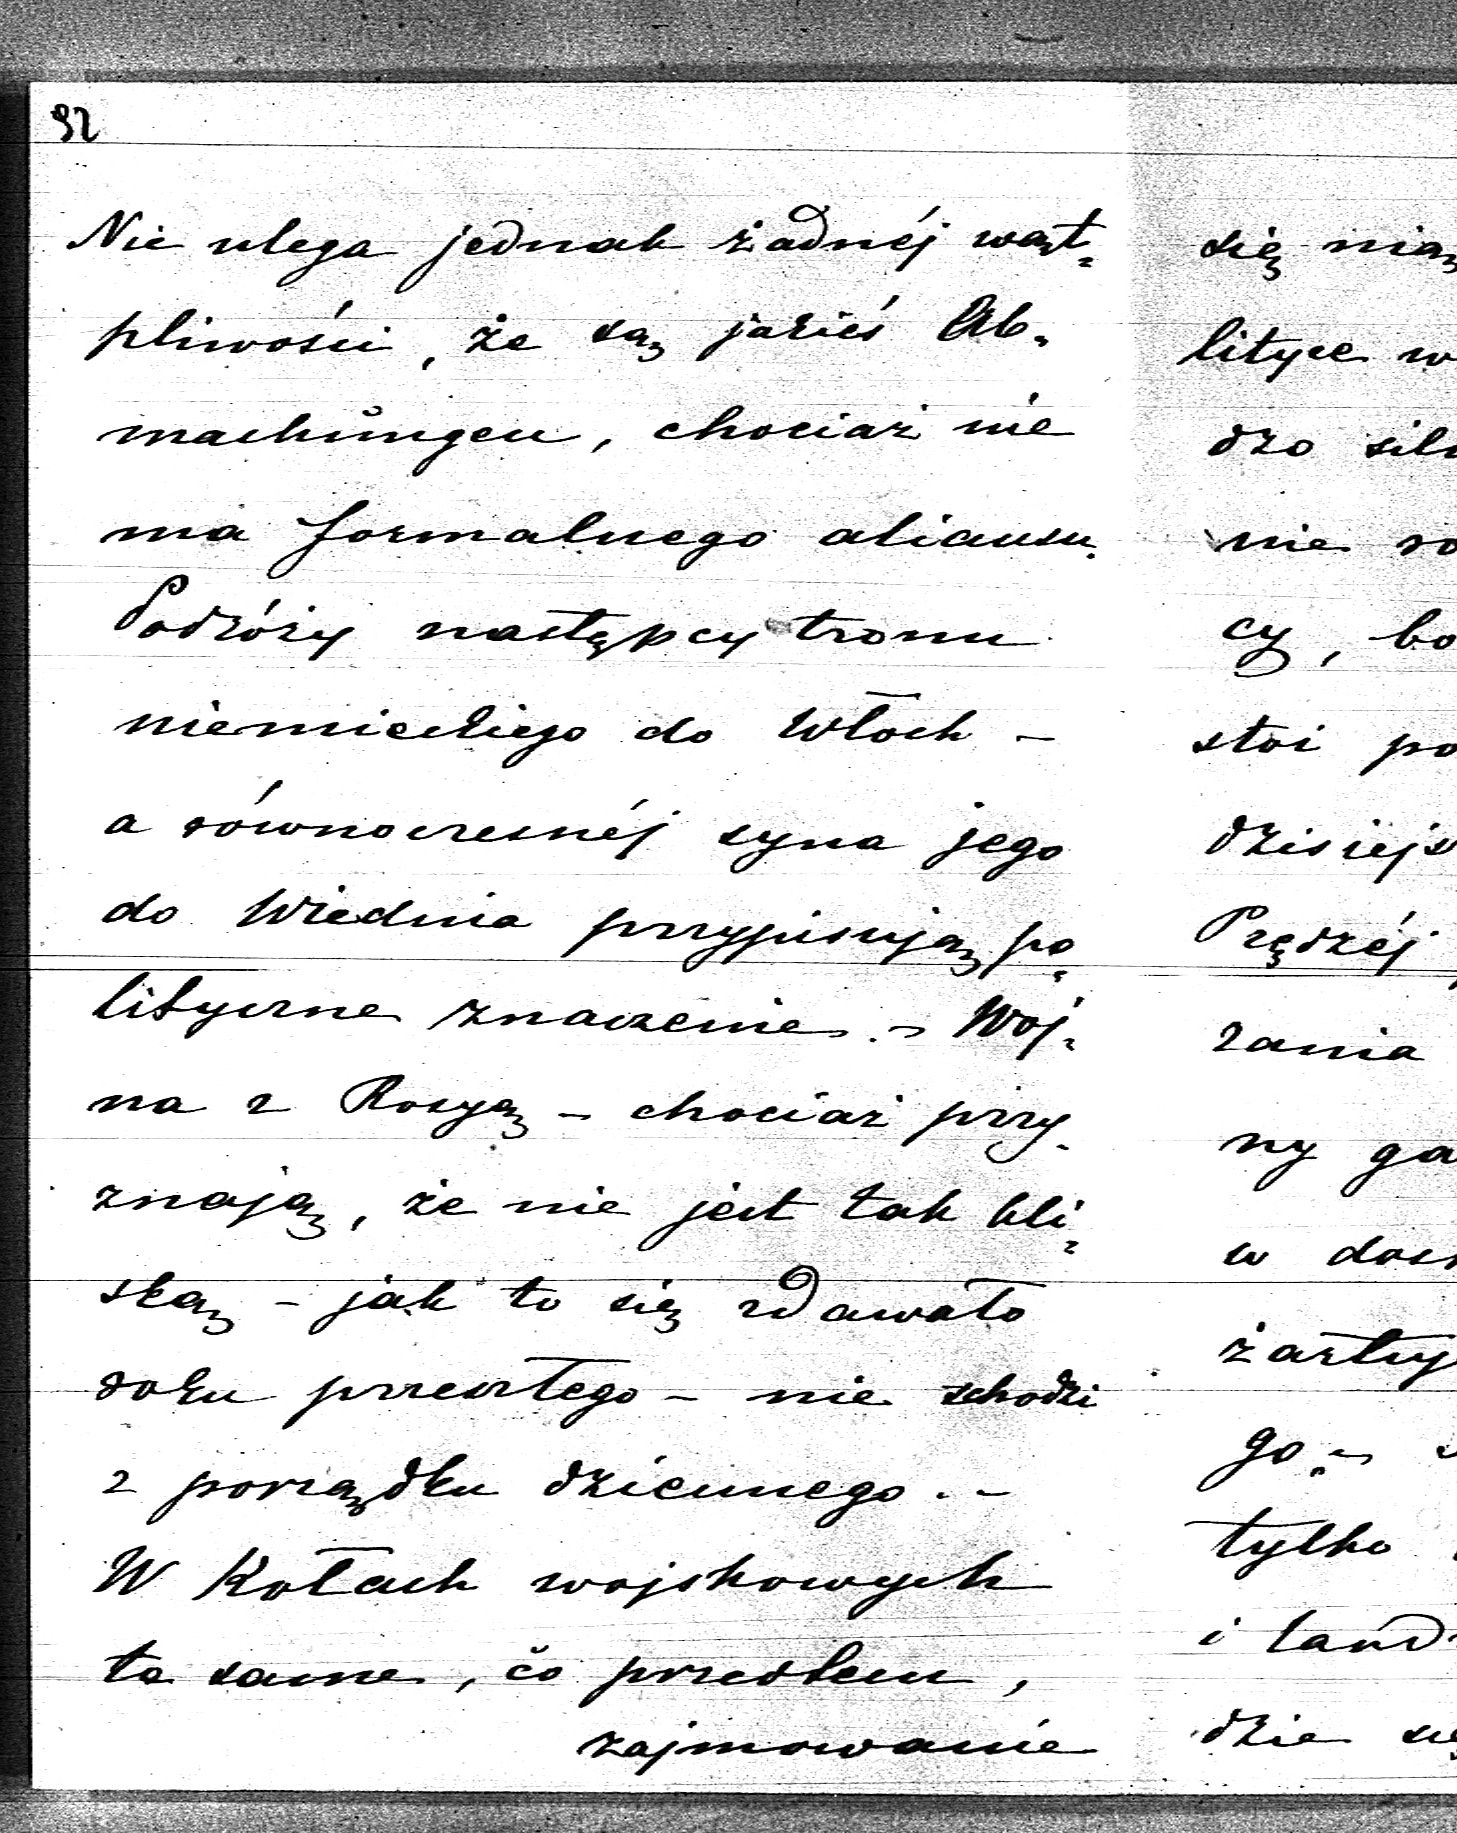 92
Nie ulega jednak żadnéj wąt-
pliwości, że są jakieś Ab-
machŭngen, chociaż nie
ma formalnego aliansu.
Podróży następcy tronu
niemieckiego do Włoch -
a równoczesnéj syna jego
do Wiednia przypisują po-
lityczne znaczenie. - Woj-
na z Rosyą - chociaż przy-
znają, że nie jest tak bli-
ską - jak to się zdawało
roku przeszłego - nie schodzi
z porządku dziennego. -
W Kołach wojskowych
to same, co przedtem,
zajmowanie
się nią
lityce w
dzo siln
nie ro
cy, bo
stoi po
dzisiejs
Prędzéj
zania
ny ga
w dos
żarty
go -
tylko
i land
dzie się